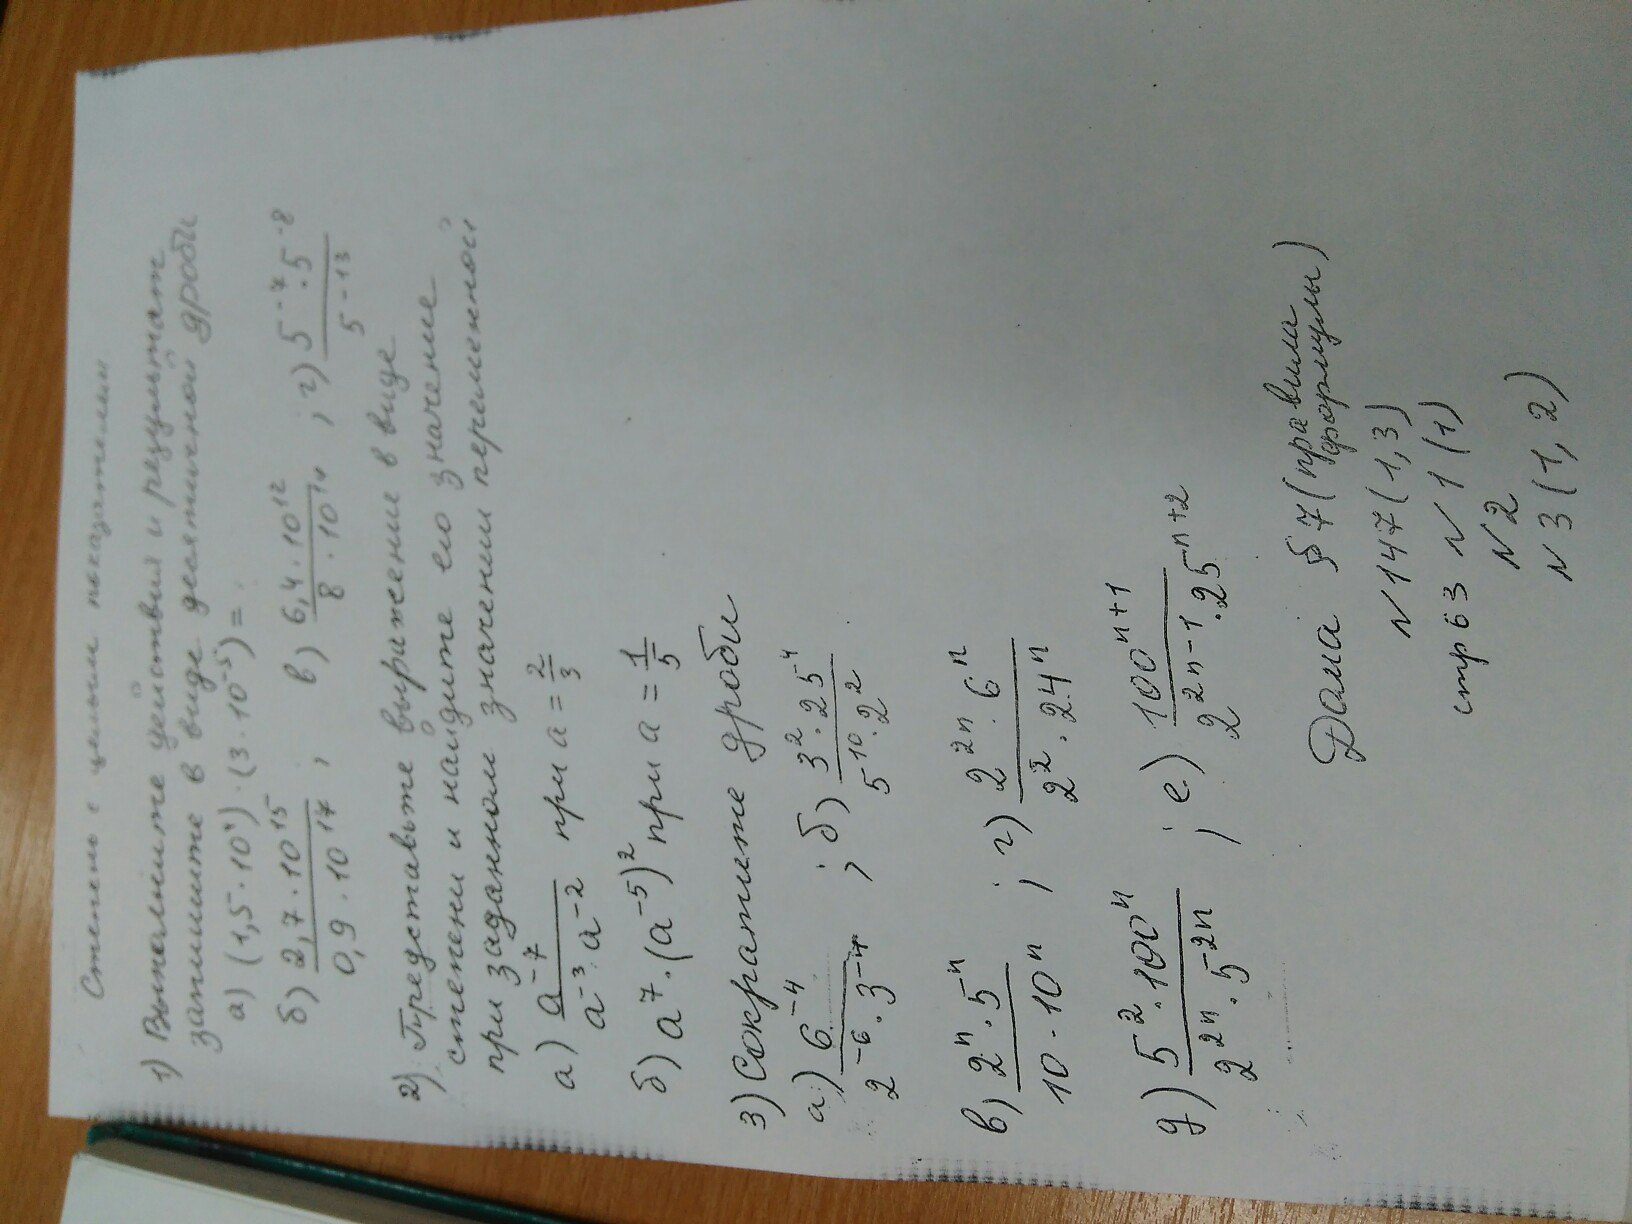 Степень с целым показателем
1) Выполните действия и результат
запишите в виде десятичной дроби
а) (1,5 · 10⁴) · (3 · 10⁻⁵) =
б) 2,7 · 10¹⁵ / 0,9 · 10¹⁷ ; в) 6,4 · 10¹² / 8 · 10¹⁴ ; г) 5⁻⁷ · 5⁻⁸ / 5⁻¹³
2) Представьте выражение в виде
степени и найдите его значение
при заданном значении переменной
а) a⁻⁷ / a⁻³ · a⁻² при a = 2/3
б) a⁷ · (a⁻⁵)² при a = 1/5
3) Сократите дроби
а) 6⁻⁴ / 2⁻⁶ · 3⁻⁴ ; б) 3² · 25⁻⁴ / 5⁻¹⁰ · 2²
в) 2ⁿ · 5ⁿ / 10 · 10ⁿ ; г) 2²ⁿ · 6ⁿ / 2² · 24ⁿ
д) 5² · 100ⁿ / 2²ⁿ · 5²ⁿ ; е) 100ⁿ⁺¹ / 2²ⁿ⁻¹ · 25ⁿ⁺²
Дома § 7 (правила
формулы)
N 147 (1, 3)
стр 63 N 1 (1)
N 2
N 3 (1, 2)